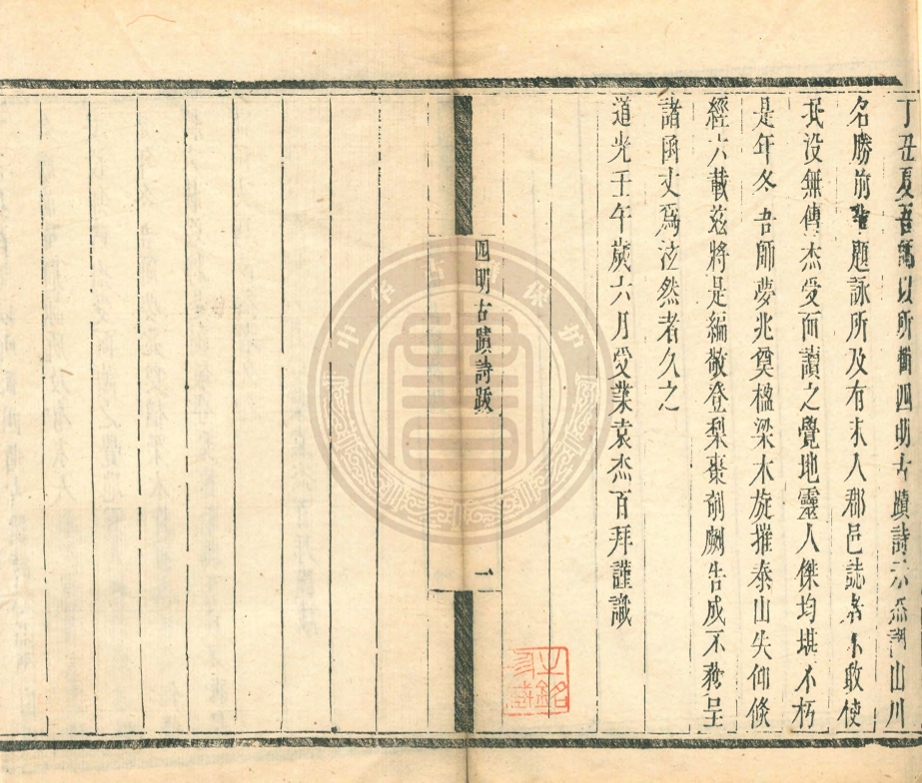 丁丑夏吾師以所輯四明古蹟詩示杰謂山川
名勝前輩題詠所及有未入郡邑誌者不敢使
泯没無傳杰受而讀之覺地靈人傑均堪不朽
是年冬吾師夢兆奠楹梁木旋摧泰山失仰倏
經六載茲將是編敬登梨棗剞劂告成不獲呈
諸函丈爲泫然者久之
道光壬午歲六月受業袁杰百拜謹識
四明古蹟詩跋
一
中华古籍保护